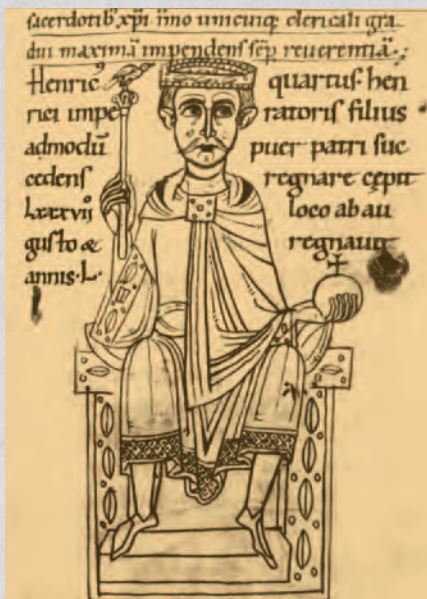 sacerdotib; xp̄i īmo unicuiq; clericali gra
dui maximā impendens sēp reverentiā.;
Henric⁹ quartus hen
rici impe ratoris filius
admodū puer patri suc
cedens regnare cępit
lxxxvii loco ab au
gusto & regnavit
annis.L.